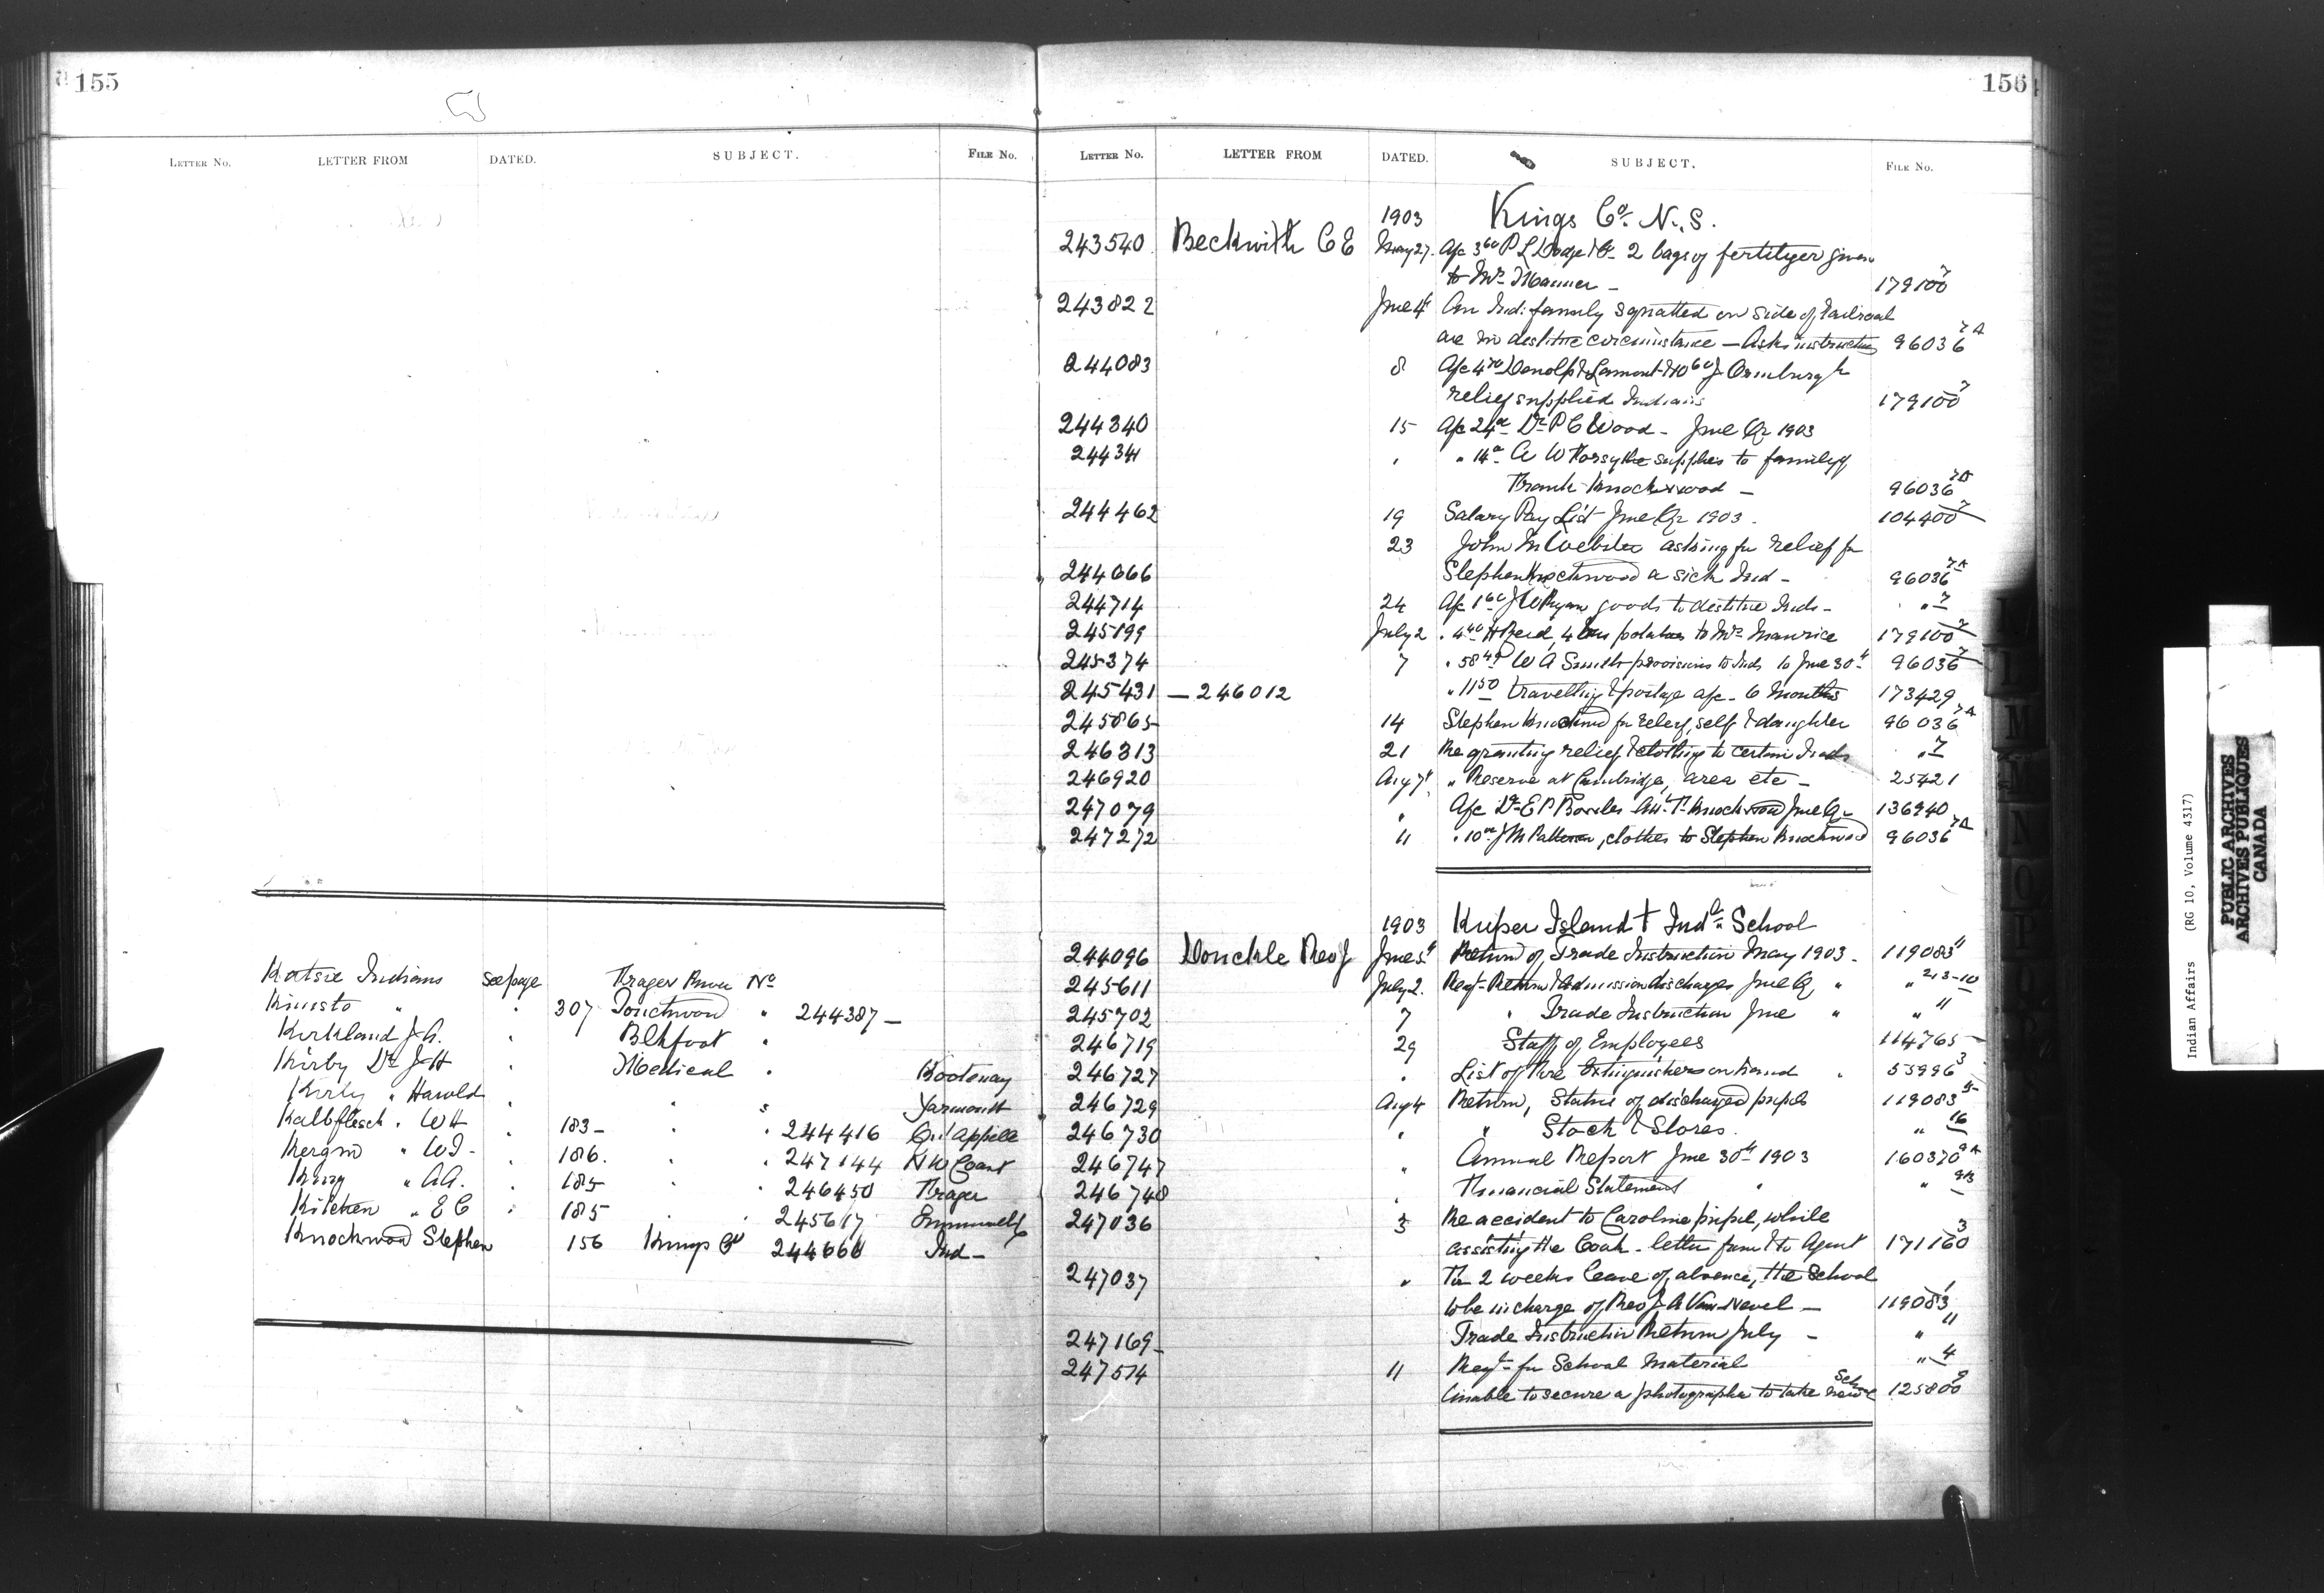 155
LETTER NO. LETTER FROM DATED. SUBJECT. FILE No.
Katsie Indians see page Fraser River No
Kinisto " " 307 Touchwood " 244387 —
Kirkland J. A. " Blkfoot "
Kirby Dr J H " Medical " Kootenay
Kirby " Harold " " " Yarmouth
Kalbfleisch " W H " 183 - " " 244416 Qu'Appelle
Kergin " W I - " 186. " " 247144 N W Coast
King " A A. " 185 " " 246450 Fraser
Kitchen " E C " 185 " " 245617
Knockwood Stephen 156 Kings Co 244666 Ind -
156
LETTER NO. LETTER FROM DATED. SUBJECT. FILE No.
1903 Kings Co. N.S.
243540 Beckwith C E May 27. A/c 3 60 P L Dodge & Co - 2 bags of fertilyer given
to Mrs - 179100 7
243822 June 4 An Ind: family squatted on side of railroad
are in destitute circumstance — Asks instructions 96036 7A
244083 8 A/c 4 70 & Lamont & 10 60 J
relief supplied Indians 179100 7
244340 15 A/c 24 Dr P C Wood - June Qr 1903
244341 " " 14 A W Forsythe supplies to family of
Frank Knockwood — 96036 7A
244462 19 Salary Pay List June Qr 1903. 104400 7
23 John M Webster asking for relief for
244666 Stephen Knockwood a sick Ind - 96036 7A
244714 24 A/c 1 60 J W Ryan goods to destitute Inds - " 7
245199 July 2 " 4 40 H Reid, 4 bus potatoes to Mrs Maurice 179100 7
245374 7 " 58 W A Smith provisions to Inds to June 30th 96036 7
245431 — 246012 " 11 50 travelling & postage a/c - 6 months 173429
245865 14 Stephen Knockwood for relief, self & daughter 96036 7A
246313 21 Re granting relief & clothing to certain Inds " 7
246920 Aug 7 " Reserve at Cambridge, area etc - 25421
247079 " A/c Dr E P Knockwood June Qr - 136940
247272 11 " 10 J M Patterson, clothes to Stephen Knockwood 96036 7A
1903 Kuper Island † Indl School
244096 Donckele Rev J June 5 Return of Trade Instruction May 1903 - 119083 11
245611 July 2. Reqt - Return & Admission discharges June Qr " " 213-10
245702 7 " Trade Instruction June " " 11
246719 29 Staff of Employees 114765 -
246727 " List of Fire Extinguishers on hand " 53996 3
246729 Aug 4 Return, Status of discharged pupils 119083 5
246730 " " Stock & Stores. " 16
246747 " Annual Report June 30th 1903 160370 9A
246748 " Financial Statement " " 9B
247036 5 Re accident to Caroline pupil, while
assisting the Cook - letter from & to Agent 171160 3
247037 " For 2 weeks leave of absence, the School
to be in charge of Rev J A Van Nevel — 119083 1
247169 - Trade Instruction Return July - " 11
247514 11 Reqt - for School material " 4
Unable to secure a photographer to take Sch 125800 9
L
M
N
O
P
Indian Affairs (RG 10, Volume 4317)
PUBLIC ARCHIVES
ARCHIVES PUBLIQUES
CANADA